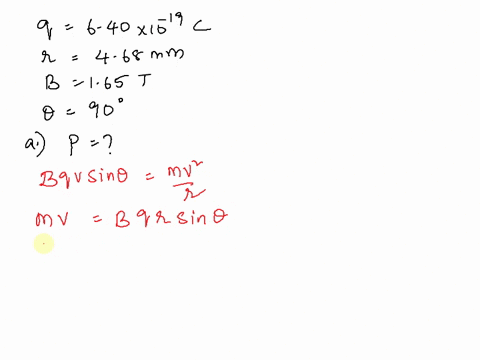 q = 6.40 × 10⁻¹⁹ C
r = 4.68 mm
B = 1.65 T
θ = 90°
a.) P = ?
Bqv sinθ = mv²/r
mv = Bqr sinθ